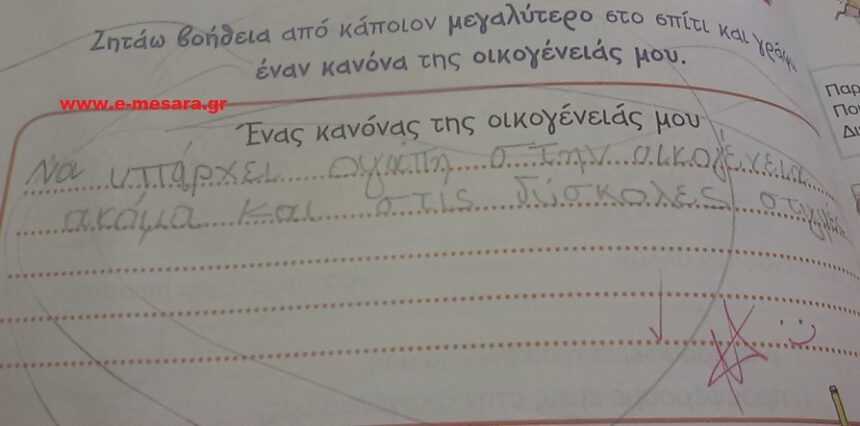 Ζητάω βοήθεια από κάποιον μεγαλύτερο στο σπίτι και γράφω
έναν κανόνα της οικογένειάς μου.
www.e-mesara.gr
Ένας κανόνας της οικογένειάς μου
Να υπάρχει αγάπη στην οικογένεια
ακόμα και στις δύσκολες στιγμές
Παρ
Πο
Δι